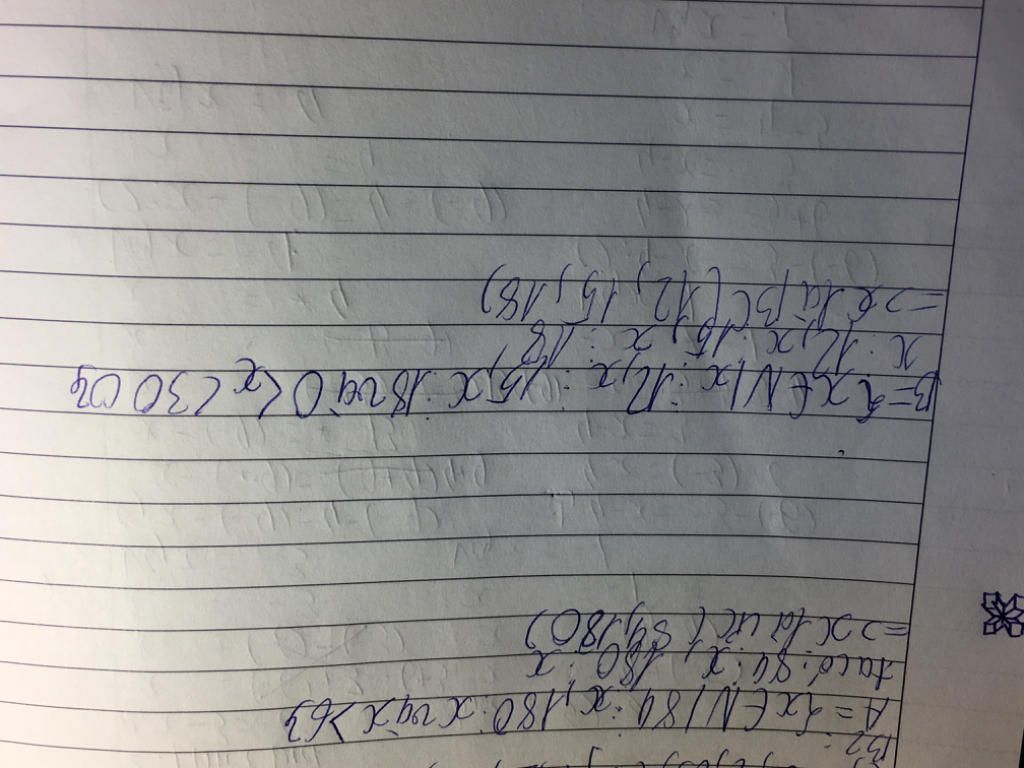 B2:
A = {x ∈ N / 84 ⋮ x, 180 ⋮ x và x > 6}
ta có: 84 ⋮ x, 180 ⋮ x
=> x là ƯC (84, 180)
B = {x ∈ N / x ⋮ 12, x ⋮ 15, x ⋮ 18 và 0 < x < 300}
x ⋮ 12, x ⋮ 15, x ⋮ 18
=> x là BC (12, 15, 18)